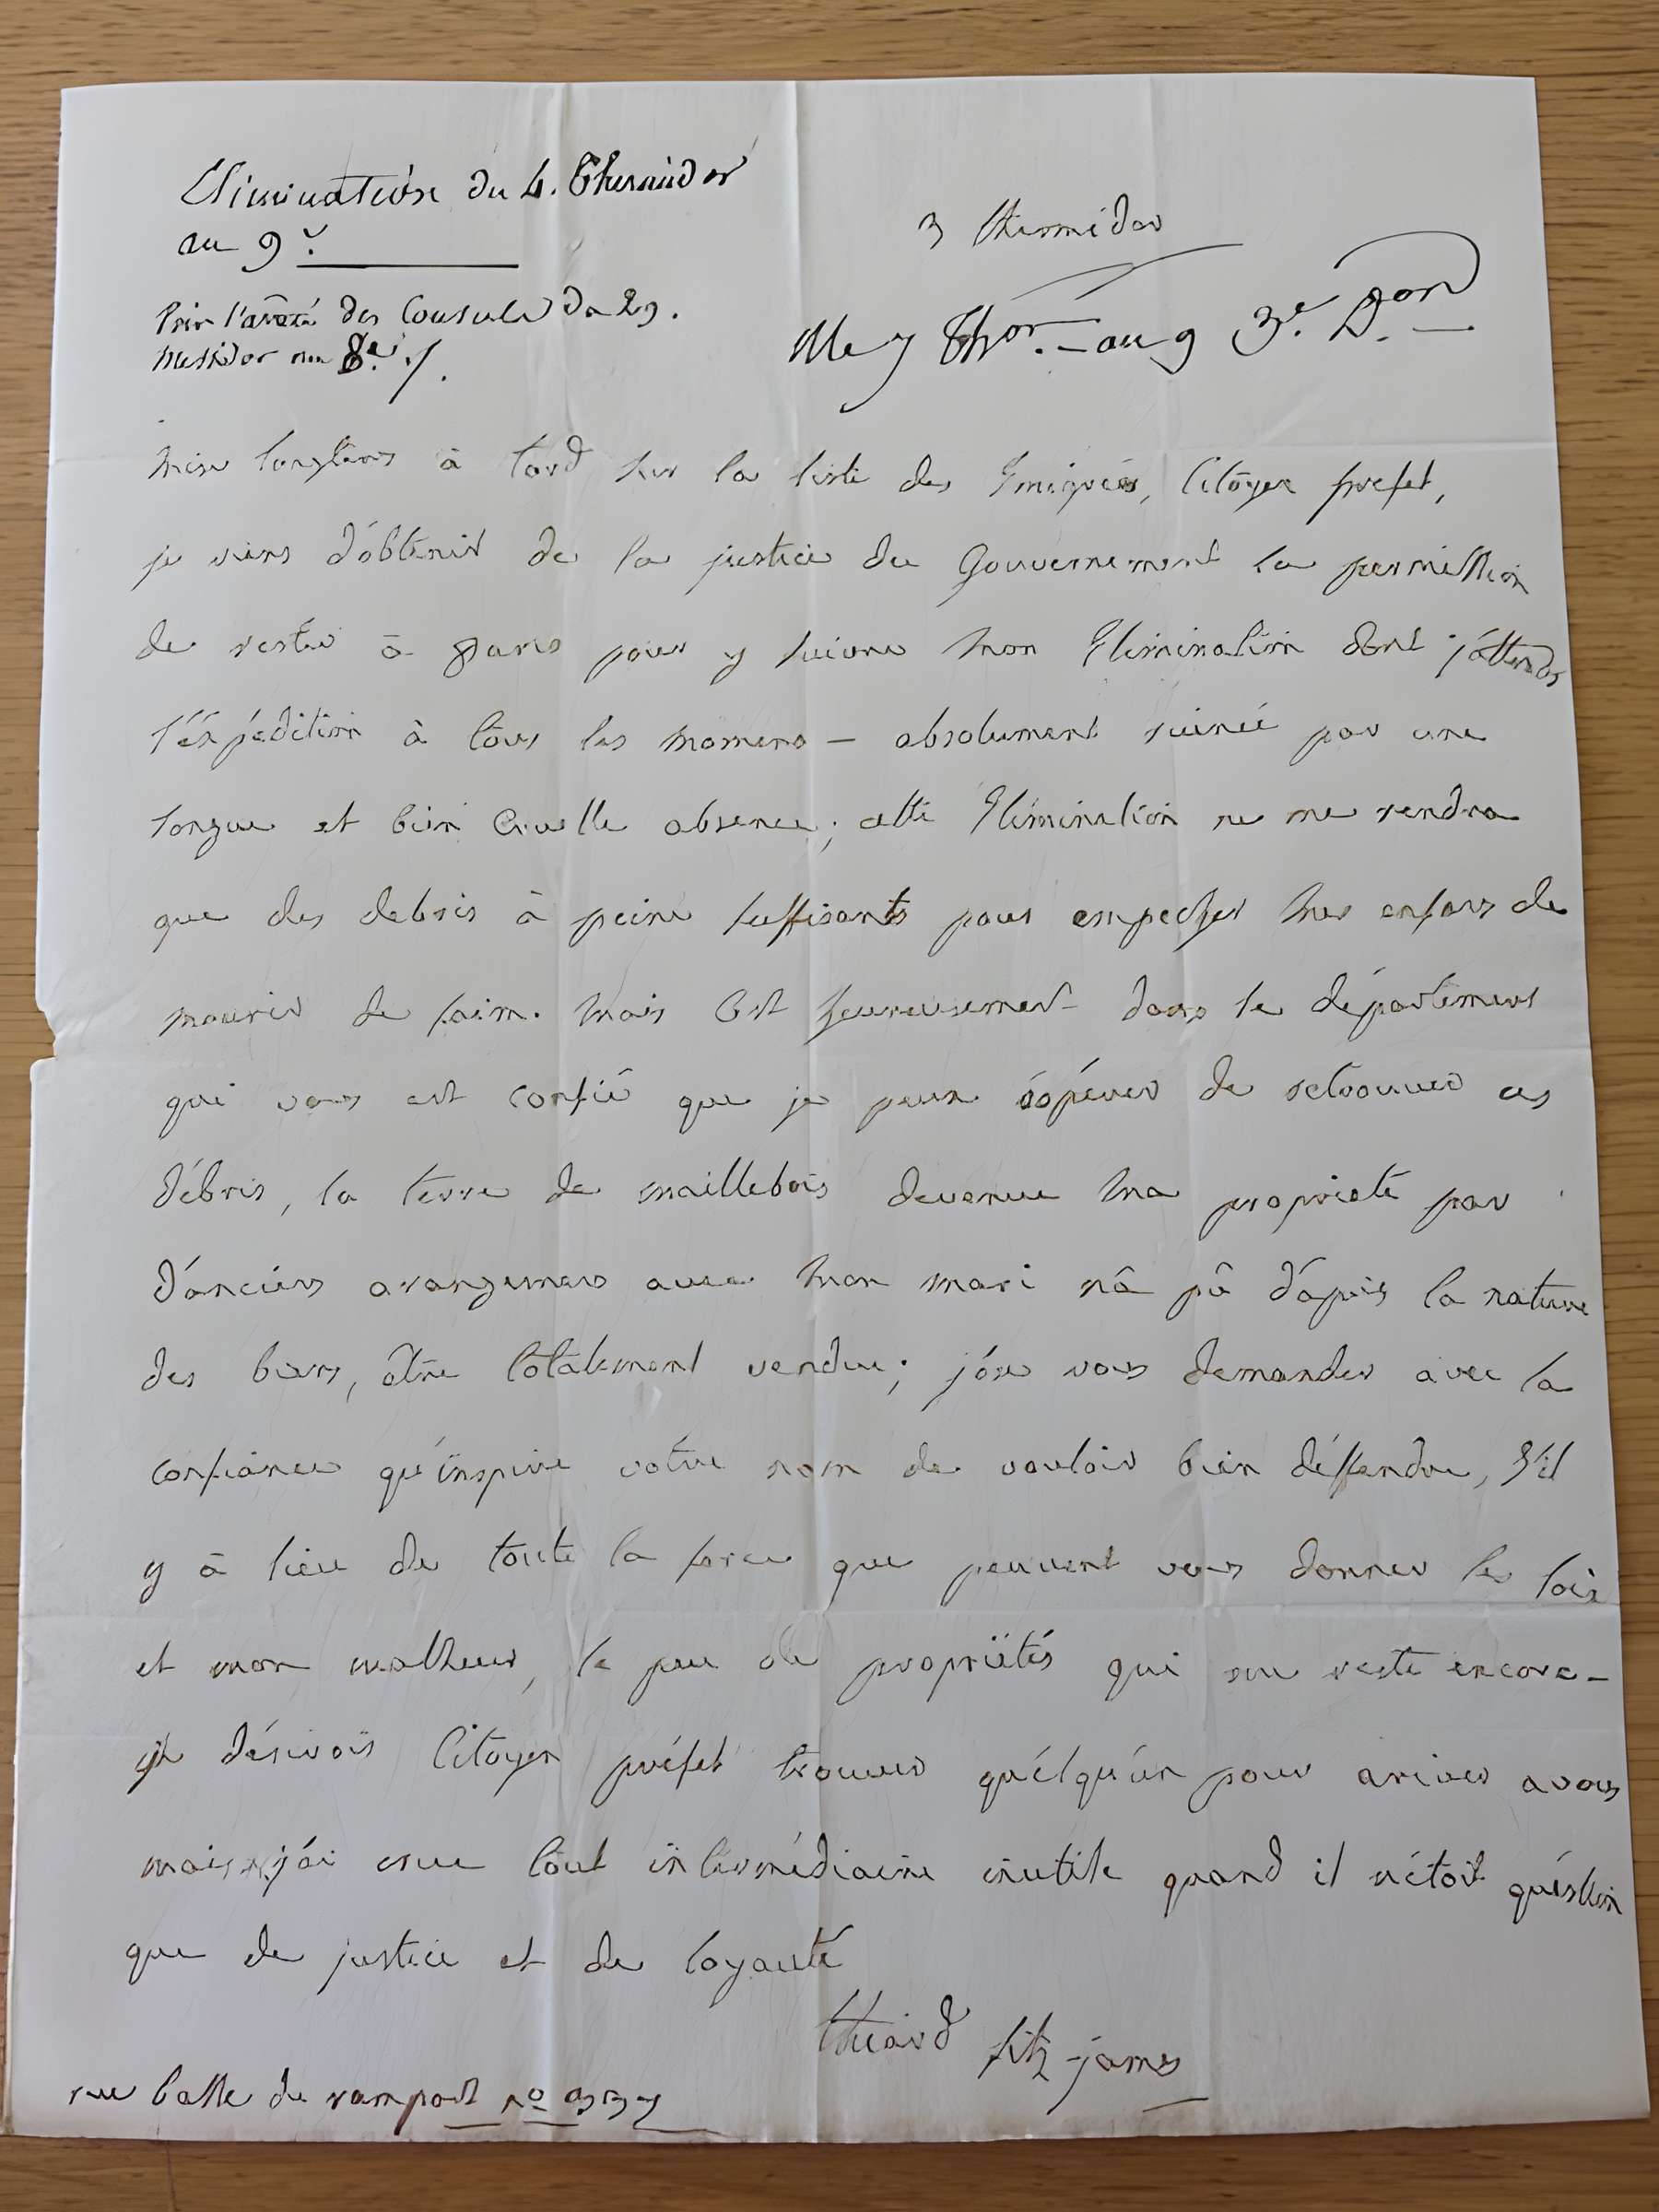 Elimination du 4. Thermidor
an 9e.
Par l'arrêté des Consuls du 29.
Messidor an 8e.
3 thermidor
Thor. an 9 3e. Don
mise longtems à tord sur la liste des Emigrées, Citoyen prefet,
je viens d'obtenir de la justice du Gouvernement la permission
de rester à Paris pour y suivre mon Elimination dont j'attends
l'éxpédition à tous les momens - absolument ruinée par une
longue et bien Cruelle absence; cette Elimination ne me rendra
que des debris à peine suffisants pour empecher mes enfans de
mourir de faim. mais C'est heureusement dans le département
qui vous est confié que je peux éspérer de retrouver ces
débris, la terre de maillebois devenue ma propriete par
d'anciens arangemens avec mon mari n'a pû d'après la nature
des biens, être totalement vendue; j'ose vous demander avec la
confiance qu'inspire votre nom de vouloir bien déffendre, s'il
y à lieu de toute la force que peuvent vous donner les loix
et mon malheur, le peu de propriétés qui me reste encore -
je désirois Citoyen préfet trouver quélqu'un pour ariver a vous
mais j'ai crue tout intermédiaire inutile quand il n'étoit quéstion
que de justice et de loyauté
thiard fitz-james
rue basse du rampart no